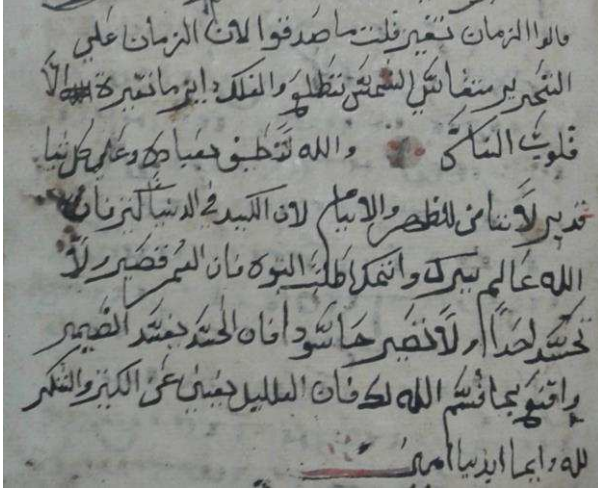 قالوا الزمان تغير قلت ما صدقوا لان الزمان علي
التحرير متفاتتي الشمس تطلع والفلك داير ما تغيرة الا
قلوب الناس والله لطيف بعباده وعلي كل شيا
قدير لا تامن للظهر والايام لان الكيد في الدنيا كثير فان
الله عالم بيرك وانتمك اطلب التوبة فان العمر قصير ولا
تحسد احدا ولا تصير حاسودا فان الحسد يفسد الضمير
واقنع بما قسم الله لك فان القليل يغني عن الكثير والشكر
لله دايما ابديا امين